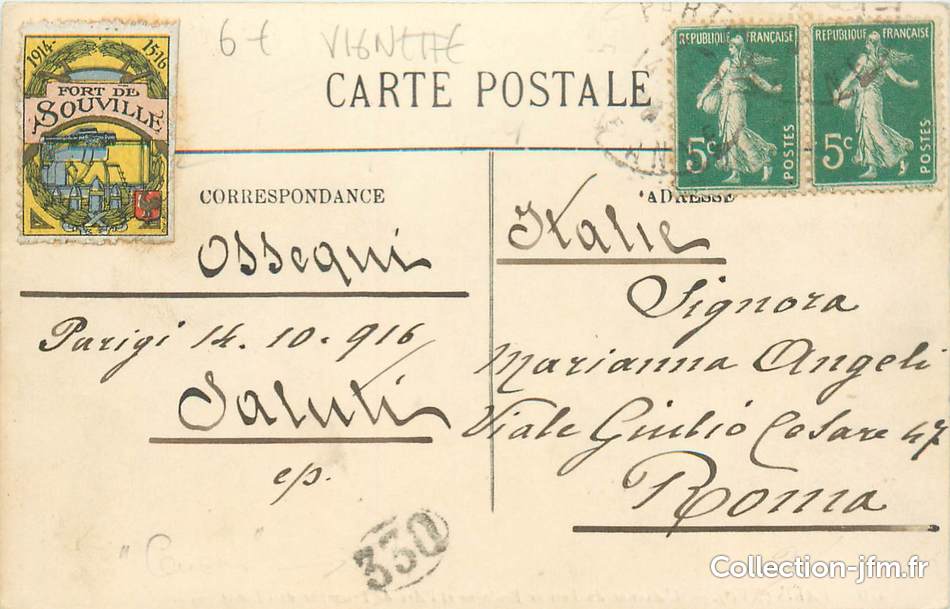 1914-1516
FORT DE
SOUVILLE
6€ VIGNETTE
CARTE POSTALE
REPUBLIQUE FRANÇAISE
5c POSTES
REPUBLIQUE FRANÇAISE
5c POSTES
CORRESPONDANCE
Ossequi
Parigi 14.10.916
Saluti
e/p.
330
ADRESSE
Italie
Signora
Marianna Angeli
Viale Giulio Cesare 47
Roma
Collection-jfm.fr